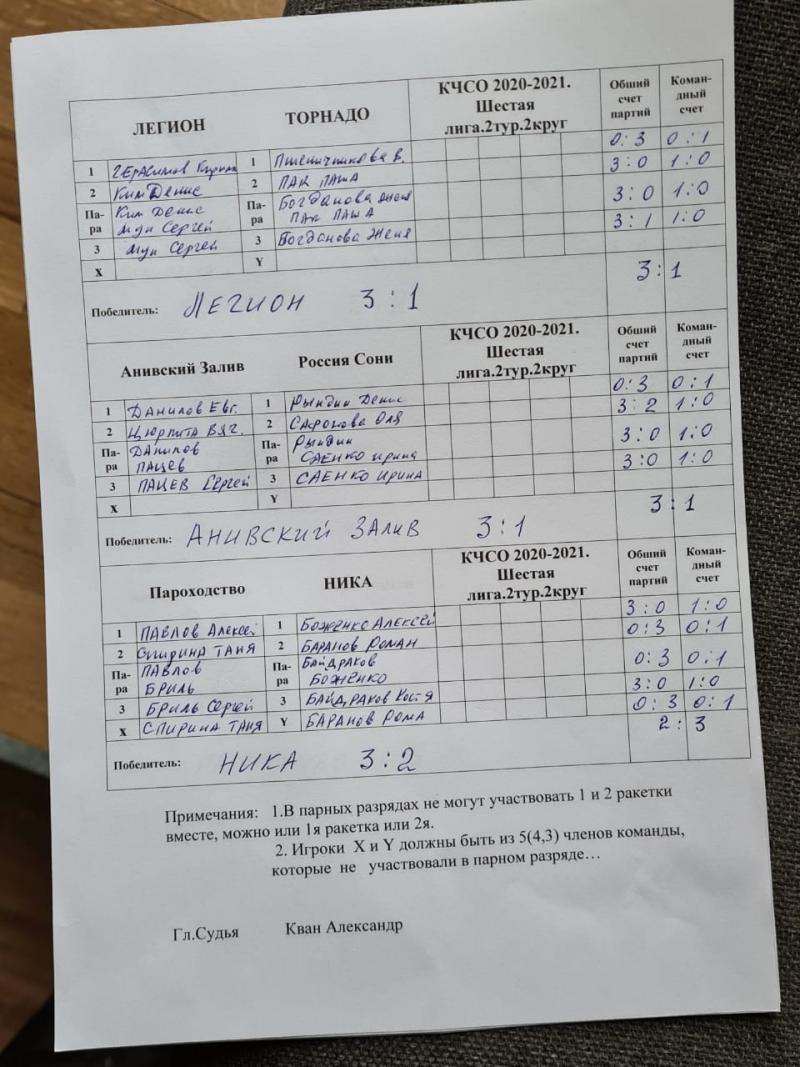 ЛЕГИОН ТОРНАДО КЧСО 2020-2021. Шестая лига.2тур.2круг Общий счет партий Коман-дный счет
1 Герасимов 1 Пшеничникова В. 0:3 0:1
2 Ким Денис 2 ПАК ПАША 3:0 1:0
Па-ра Ким Денис Мун Сергей Па-ра Богданова Женя ПАК ПАША 3:0 1:0
3 Мун Сергей 3 Богданова Женя 3:1 1:0
X Y
Победитель: ЛЕГИОН 3:1 3:1
Анивский Залив Россия Сони КЧСО 2020-2021. Шестая лига.2тур.2круг Общий счет партий Коман-дный счет
1 ДАНИЛОВ Евг. 1 Рындин Денис 0:3 0:1
2 Цюрпита Вяч. 2 САФОНОВА Оля 3:2 1:0
Па-ра ДАНИЛОВ ПАЦЕВ Па-ра Рындин САЕНКО Ирина 3:0 1:0
3 ПАЦЕВ Сергей 3 САЕНКО Ирина 3:0 1:0
X Y
Победитель: АНИВСКИЙ ЗАЛИВ 3:1 3:1
Пароходство НИКА КЧСО 2020-2021. Шестая лига.2тур.2круг Общий счет партий Коман-дный счет
1 ПАВЛОВ Алексей 1 БОЖЕНКО АЛЕКСЕЙ 3:0 1:0
2 Спирина ТАНЯ 2 БАРАНОВ РОМАН 0:3 0:1
Па-ра ПАВЛОВ БРИЛЬ Па-ра БАЙДРАКОВ БОЖЕНКО 0:3 0:1
3 БРИЛЬ СЕРГЕЙ 3 БАЙДРАКОВ КОСТЯ 3:0 1:0
X СПИРИНА ТАНЯ Y БАРАНОВ РОМА 0:3 0:1
2:3
Победитель: НИКА 3:2
Примечания: 1.В парных разрядах не могут участвовать 1 и 2 ракетки
вместе, можно или 1я ракетка или 2я.
2. Игроки X и Y должны быть из 5(4,3) членов команды,
которые не участвовали в парном разряде…
Гл.Судья Кван Александр